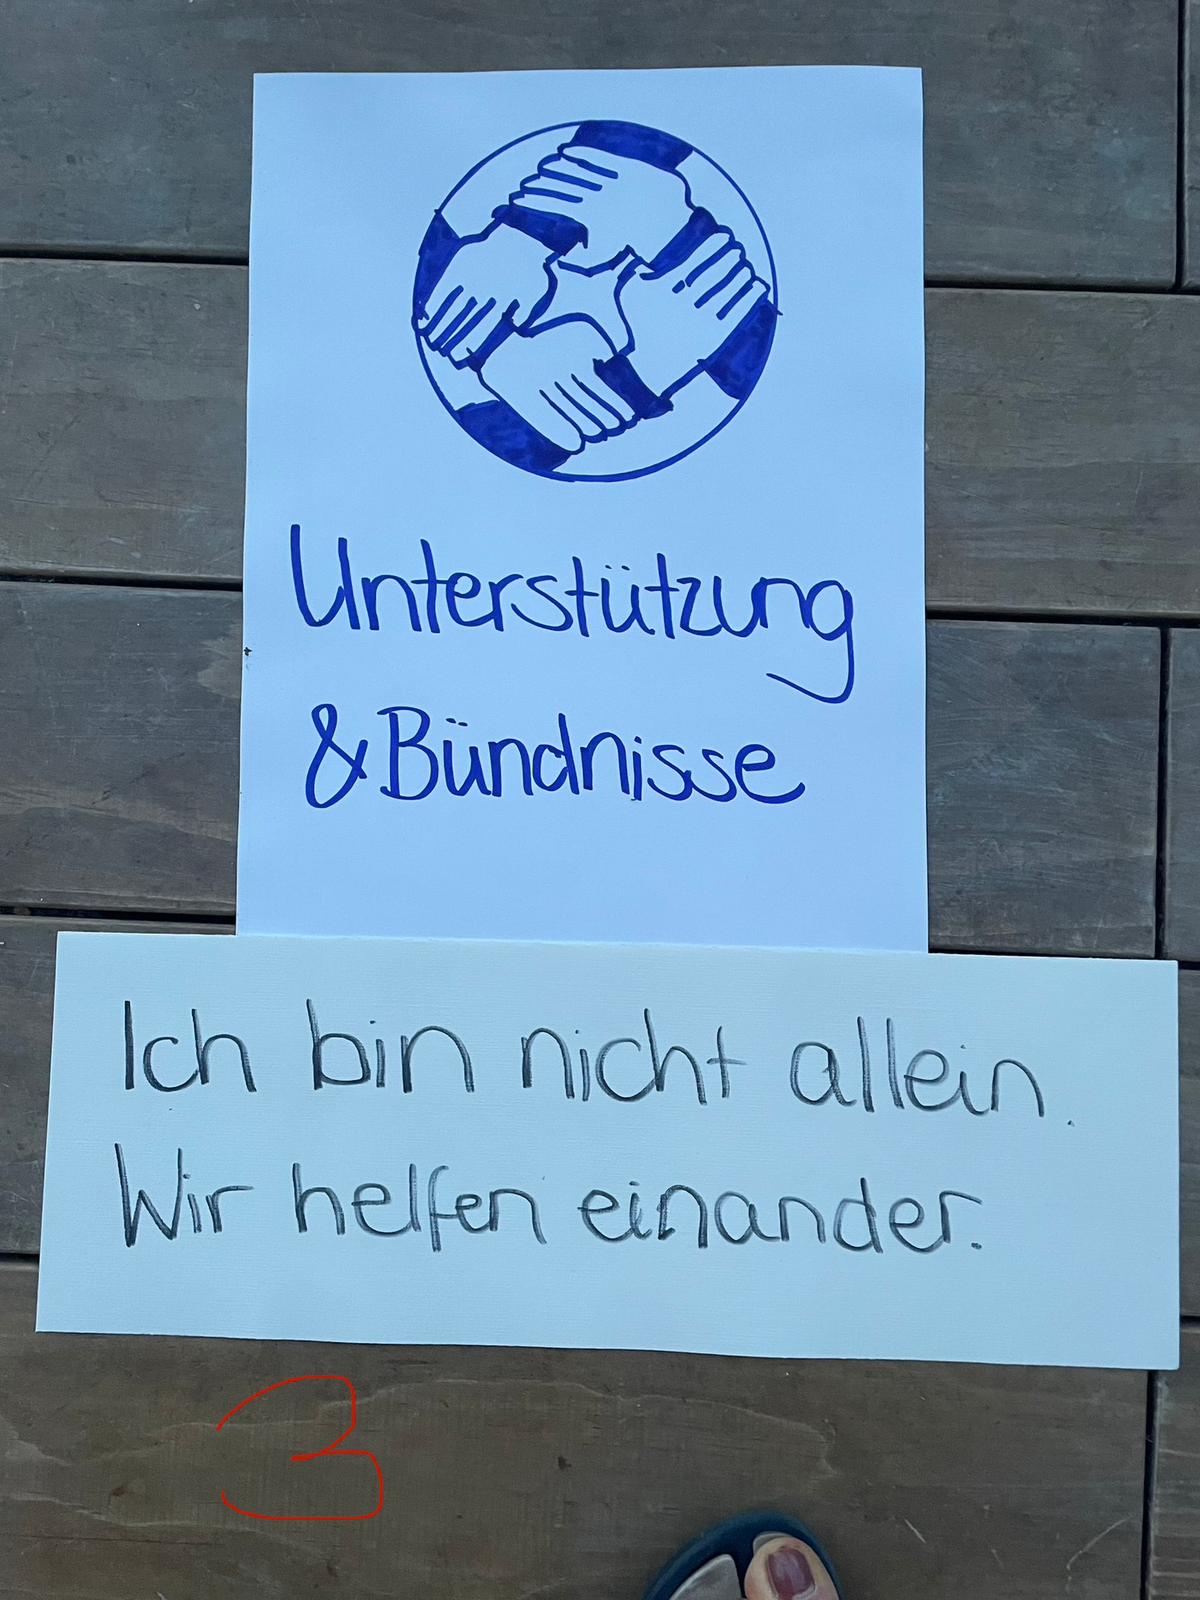 Unterstützung
& Bündnisse
Ich bin nicht allein.
Wir helfen einander.
3